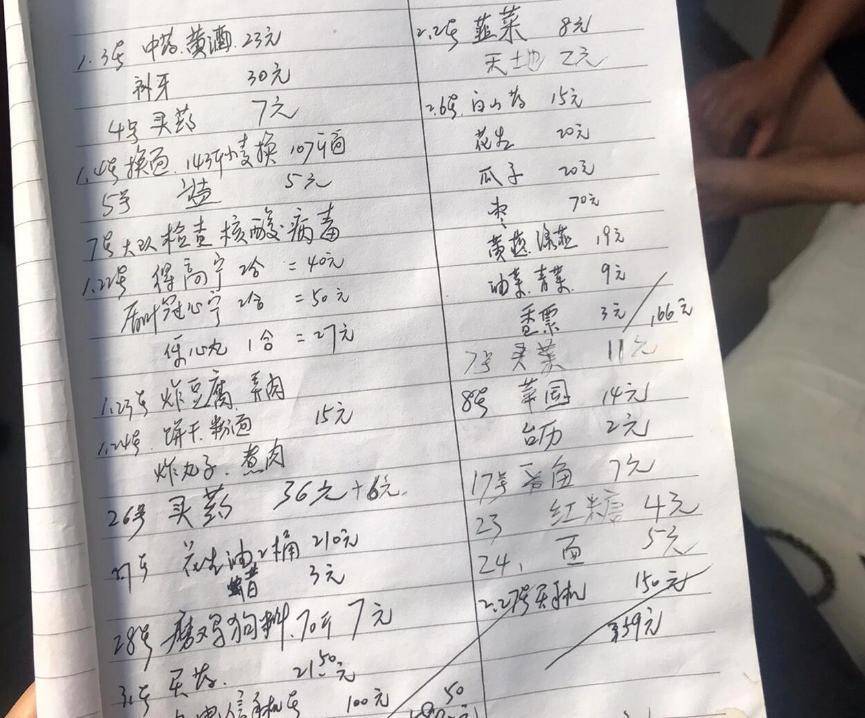 1.3号 中药.黄酒.23元
补牙 30元
4号 买药 7元
1.4号 换面.143斤小麦换107斤面
5号 5元
7号 大队检查核酸.病毒
1.22号 得高宁 2合 =40元
冠心宁 2合 =50元
保心丸 1合 =27元
1.23号 炸豆腐.煮肉
1.24号 饼干.粉面 15元
炸丸子.煮肉
26号 买药 36元+6元.
27号 花生油2桶 210元
醋 3元
28号 磨鸡狗料.70斤 7元
31号 买药. 21.50元
100元
50
2.2号 韭菜 8元
天地 2元
2.6号.白山药 15元
花生 20元
瓜子 20元
枣 70元
黄 19元
油菜.青菜. 9元
3元 166元
7号 买菜 11元
8号 14元
台历 2元
17号 7元
23 红糖 4元
24. 面 5元
2.27号 手机 150元
359元